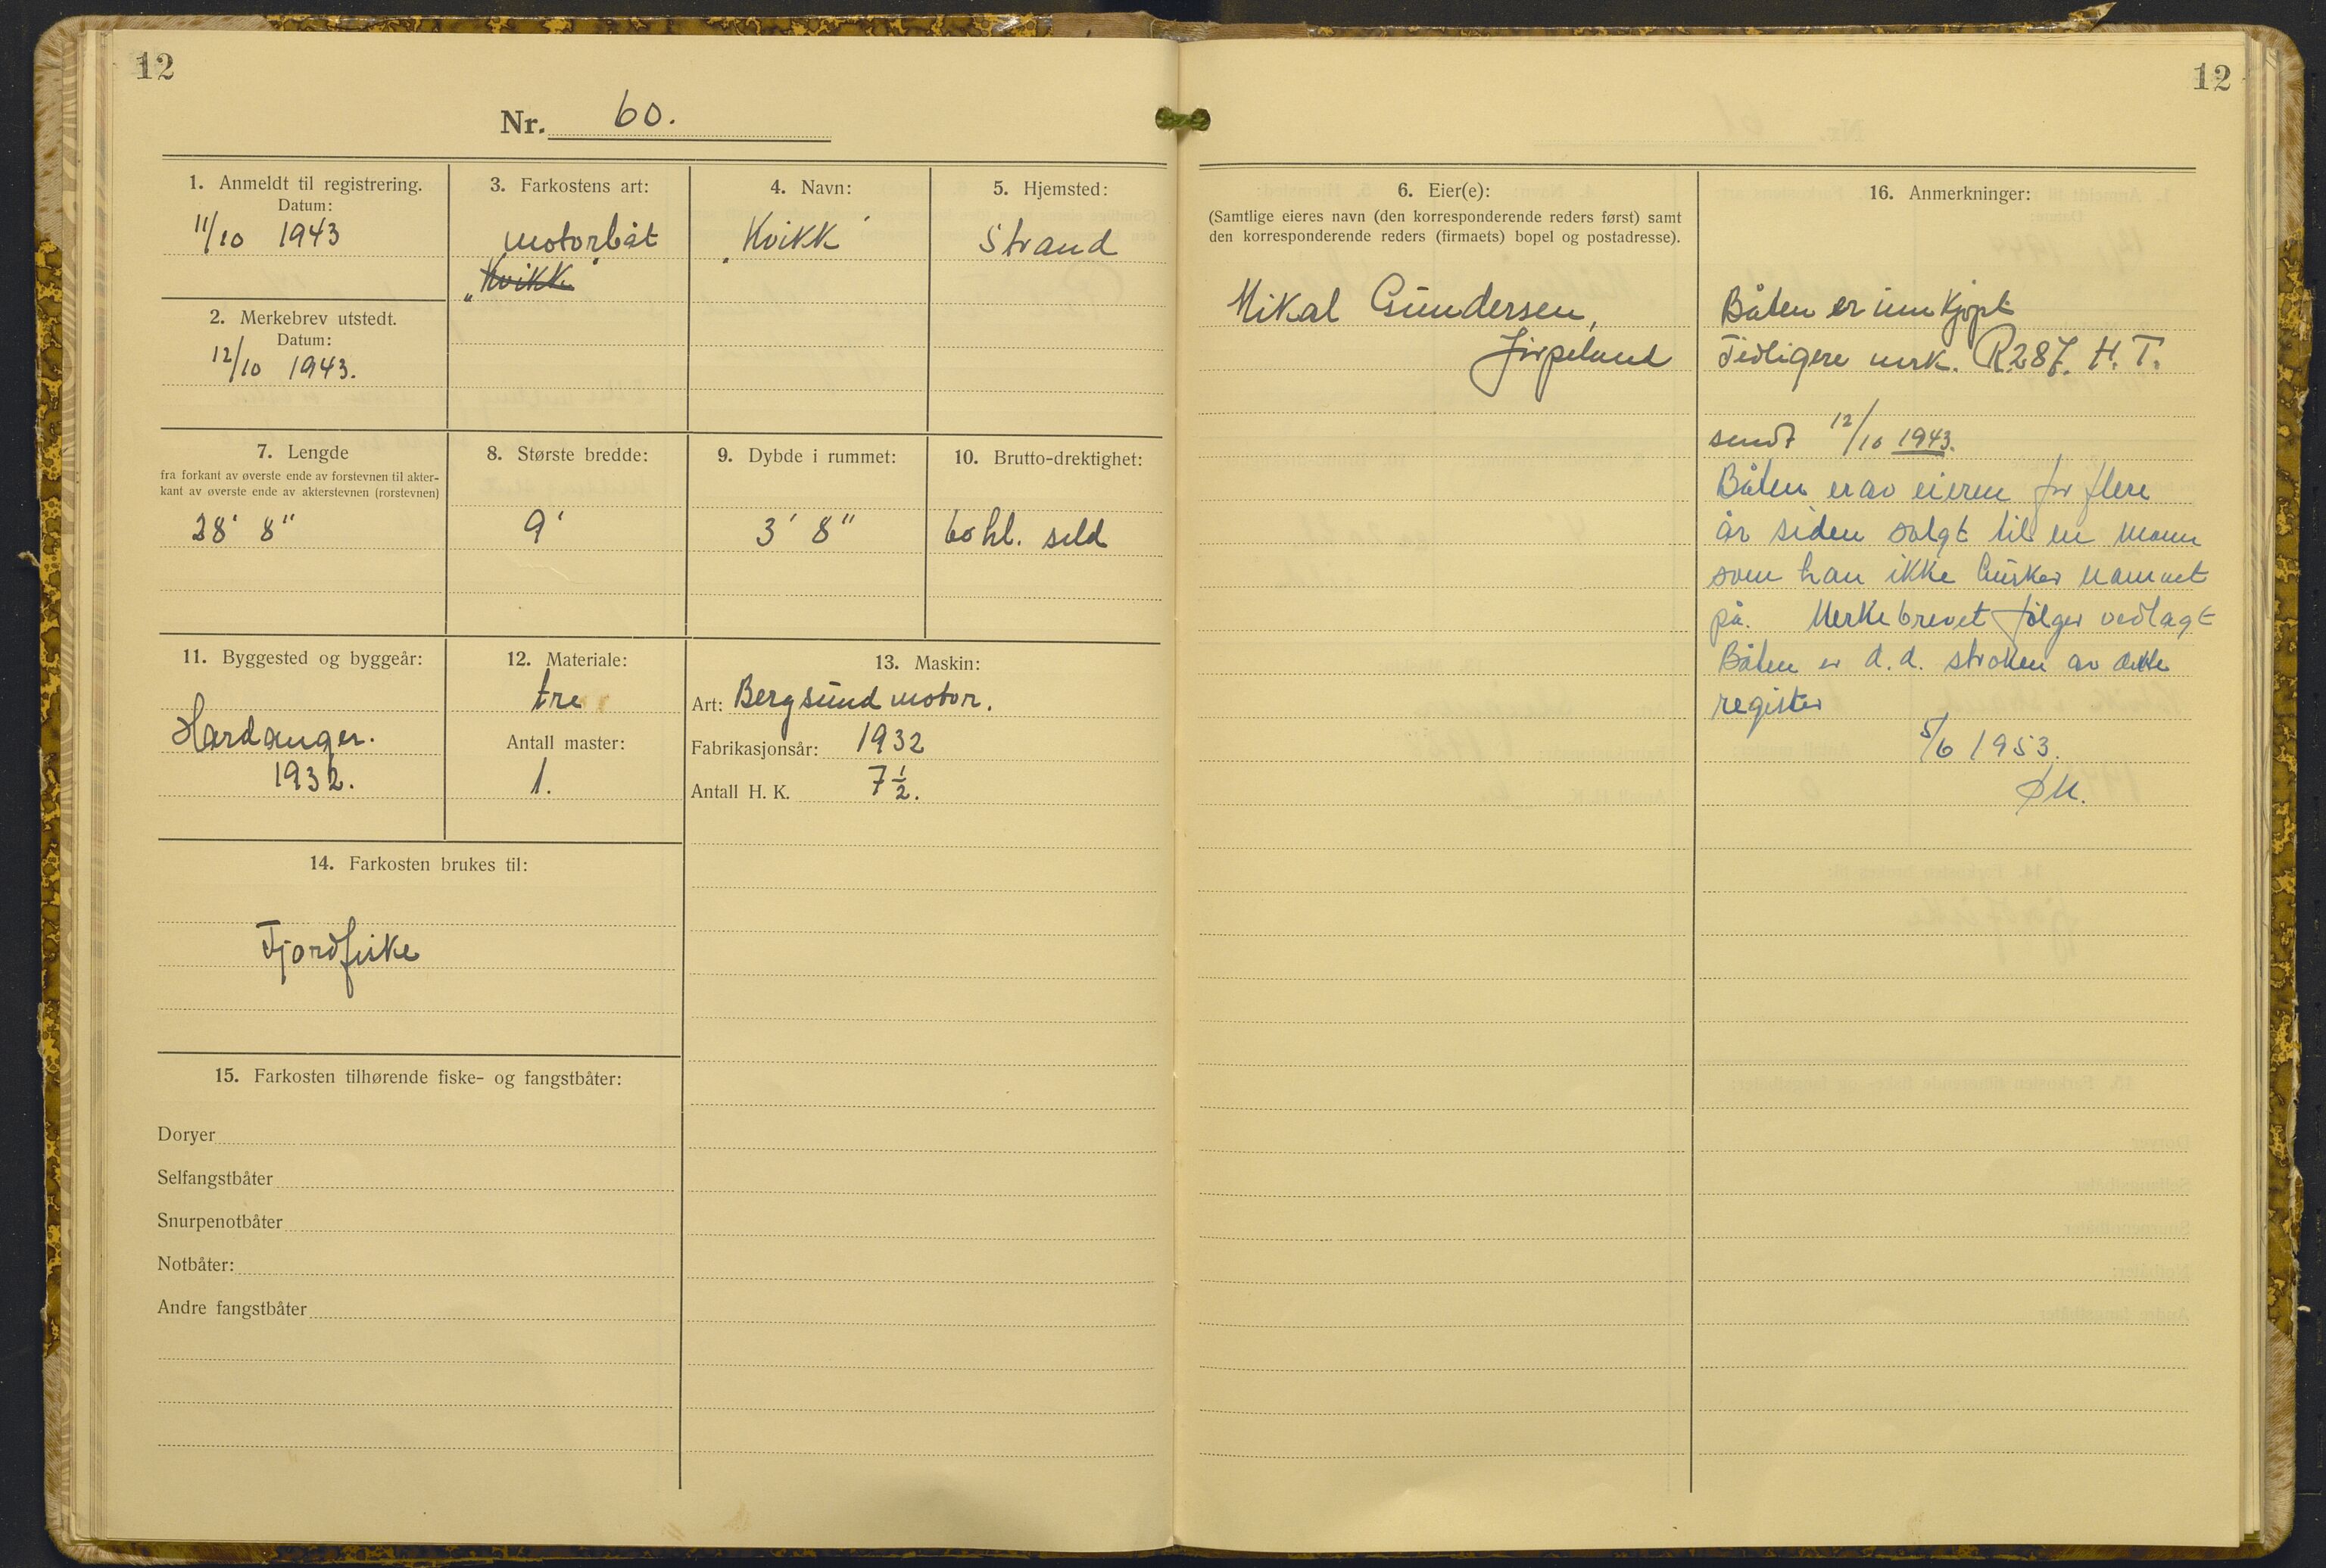 12
12
Nr. 60.
1. Anmeldt til registrering.
Datum:
11/10 1943
2. Merkebrev utstedt.
Datum:
12/10 1943.
3. Farkostens art:
motorbåt
"Kvikk"
4. Navn:
"Kvikk"
5. Hjemsted:
Strand
7. Lengde
fra forkant av øverste ende av forstevnen til akter-
kant av øverste ende av akterstevnen (rorstevnen)
28' 8"
8. Største bredde:
9'
9. Dybde i rummet:
3' 8"
10. Brutto-drektighet:
60 hl. sild
11. Byggested og byggeår:
Hardanger.
1932.
12. Materiale:
tre
Antall master:
1.
13. Maskin:
Art: Bergsund motor.
Fabrikasjonsår: 1932
Antall H. K. 7 1/2.
14. Farkosten brukes til:
Fjordfiske
15. Farkosten tilhørende fiske- og fangstbåter:
Doryer
Selfangstbåter
Snurpenotbåter
Notbåter:
Andre fangstbåter
6. Eier(e):
(Samtlige eieres navn (den korresponderende reders først) samt
den korresponderende reders (firmaets) bopel og postadresse).
Mikal Gundersen,
Jørpeland
16. Anmerkninger:
Båten er innkjøpt
Tidligere merk. R.287. H. T.
sendt 12/10 1943.
Båten er av eieren for flere
år siden solgt til en mann
som han ikke husker namnet
på. Merkebrevet følger vedlagt
Båten er d.d. strøken av dette
register
5/6 1953.